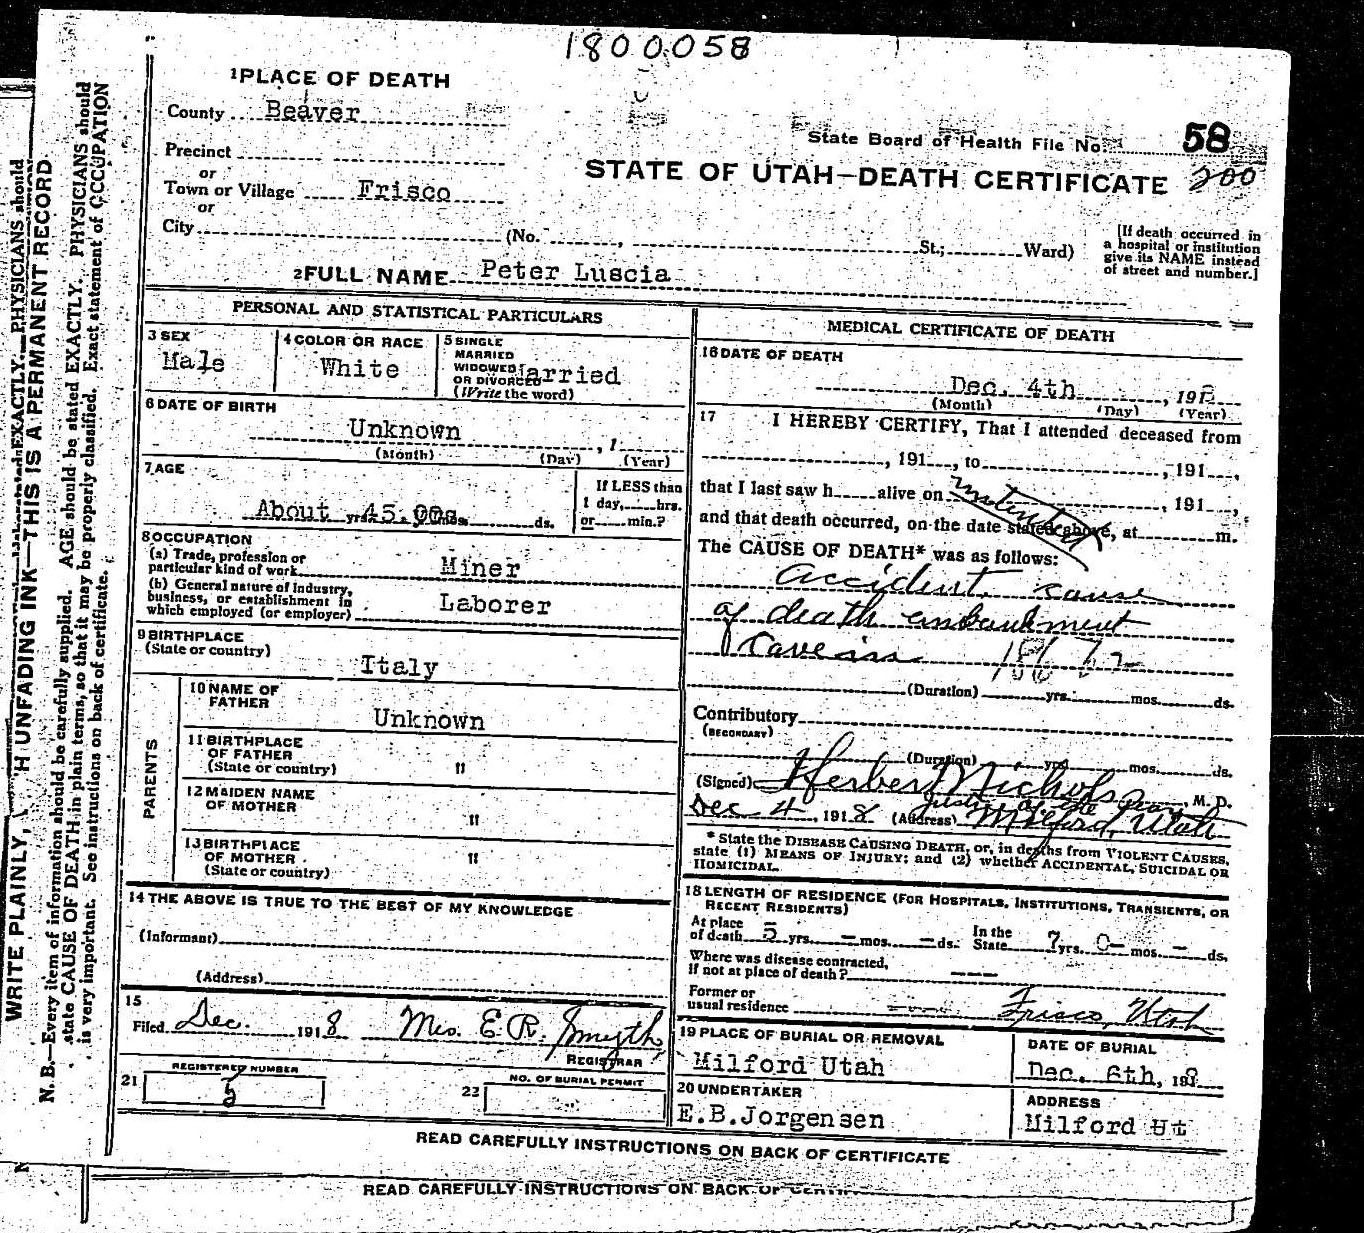 1800058
1 PLACE OF DEATH
County Beaver
State Board of Health File No. 58
Precinct
or
STATE OF UTAH—DEATH CERTIFICATE 200
Town or Village Frisco
or
City (No. , St.; Ward)
[If death occurred in
a hospital or institution
give its NAME instead
of street and number.]
2 FULL NAME Peter Luscia
PERSONAL AND STATISTICAL PARTICULARS
3 SEX
Male
4 COLOR OR RACE
White
5 SINGLE
MARRIED
WIDOWED
OR DIVORCED
(Write the word)
Married
6 DATE OF BIRTH
Unknown , 1
(Month) (Day) (Year)
7 AGE
About 45.00 yrs. mos. ds.
If LESS than
1 day, hrs.
or min.?
8 OCCUPATION
(a) Trade, profession or
particular kind of work Miner
(b) General nature of industry,
business, or establishment in
which employed (or employer) Laborer
9 BIRTHPLACE
(State or country)
Italy
PARENTS
10 NAME OF
FATHER
Unknown
11 BIRTHPLACE
OF FATHER
(State or country) "
12 MAIDEN NAME
OF MOTHER "
13 BIRTHPLACE
OF MOTHER
(State or country) "
14 THE ABOVE IS TRUE TO THE BEST OF MY KNOWLEDGE
(Informant)
(Address)
15
Filed Dec. 1918 Mrs. E. R. Smyth
REGISTRAR
21 REGISTERED NUMBER
5
22 NO. OF BURIAL PERMIT
MEDICAL CERTIFICATE OF DEATH
16 DATE OF DEATH
Dec. 4th , 191
(Month) (Day) (Year)
17 I HEREBY CERTIFY, That I attended deceased from
, 191 , to , 191 ,
that I last saw h alive on , 191 ,
and that death occurred, on the date stated above, at m.
The CAUSE OF DEATH* was as follows:
Accident. cause
of death embankment
Cave in
(Duration) yrs. mos. ds.
Contributory
(SECONDARY)
(Duration) yrs. mos. ds.
(Signed) Herbert Nichols , M. D.
Justice of the
Dec 4 , 1918 (Address) Milford, Utah
* State the DISEASE CAUSING DEATH, or, in deaths from VIOLENT CAUSES,
state (1) MEANS OF INJURY; and (2) whether ACCIDENTAL, SUICIDAL OR
HOMICIDAL.
18 LENGTH OF RESIDENCE (FOR HOSPITALS, INSTITUTIONS, TRANSIENTS, OR
RECENT RESIDENTS)
At place
of death 5 yrs. — mos. — ds.
In the
State 7 yrs. 0 — mos. — ds.
Where was disease contracted,
If not at place of death? ---
Former or
usual residence Frisco, Utah
19 PLACE OF BURIAL OR REMOVAL
Milford Utah
DATE OF BURIAL
Dec. 6th, 1918
20 UNDERTAKER
E.B.Jorgensen
ADDRESS
Milford Ut
READ CAREFULLY INSTRUCTIONS ON BACK OF CERTIFICATE
READ CAREFULLY INSTRUCTIONS ON BACK OF
WRITE PLAINLY, H UNFADING INK—THIS IS A PERMANENT RECORD
N. B.—Every item of information should be carefully supplied. AGE should be stated EXACTLY. PHYSICIANS should
state CAUSE OF DEATH in plain terms, so that it may be properly classified. Exact statement of OCCUPATION
is very important. See instructions on back of certificate.
EXACTLY. PHYSICIANS should